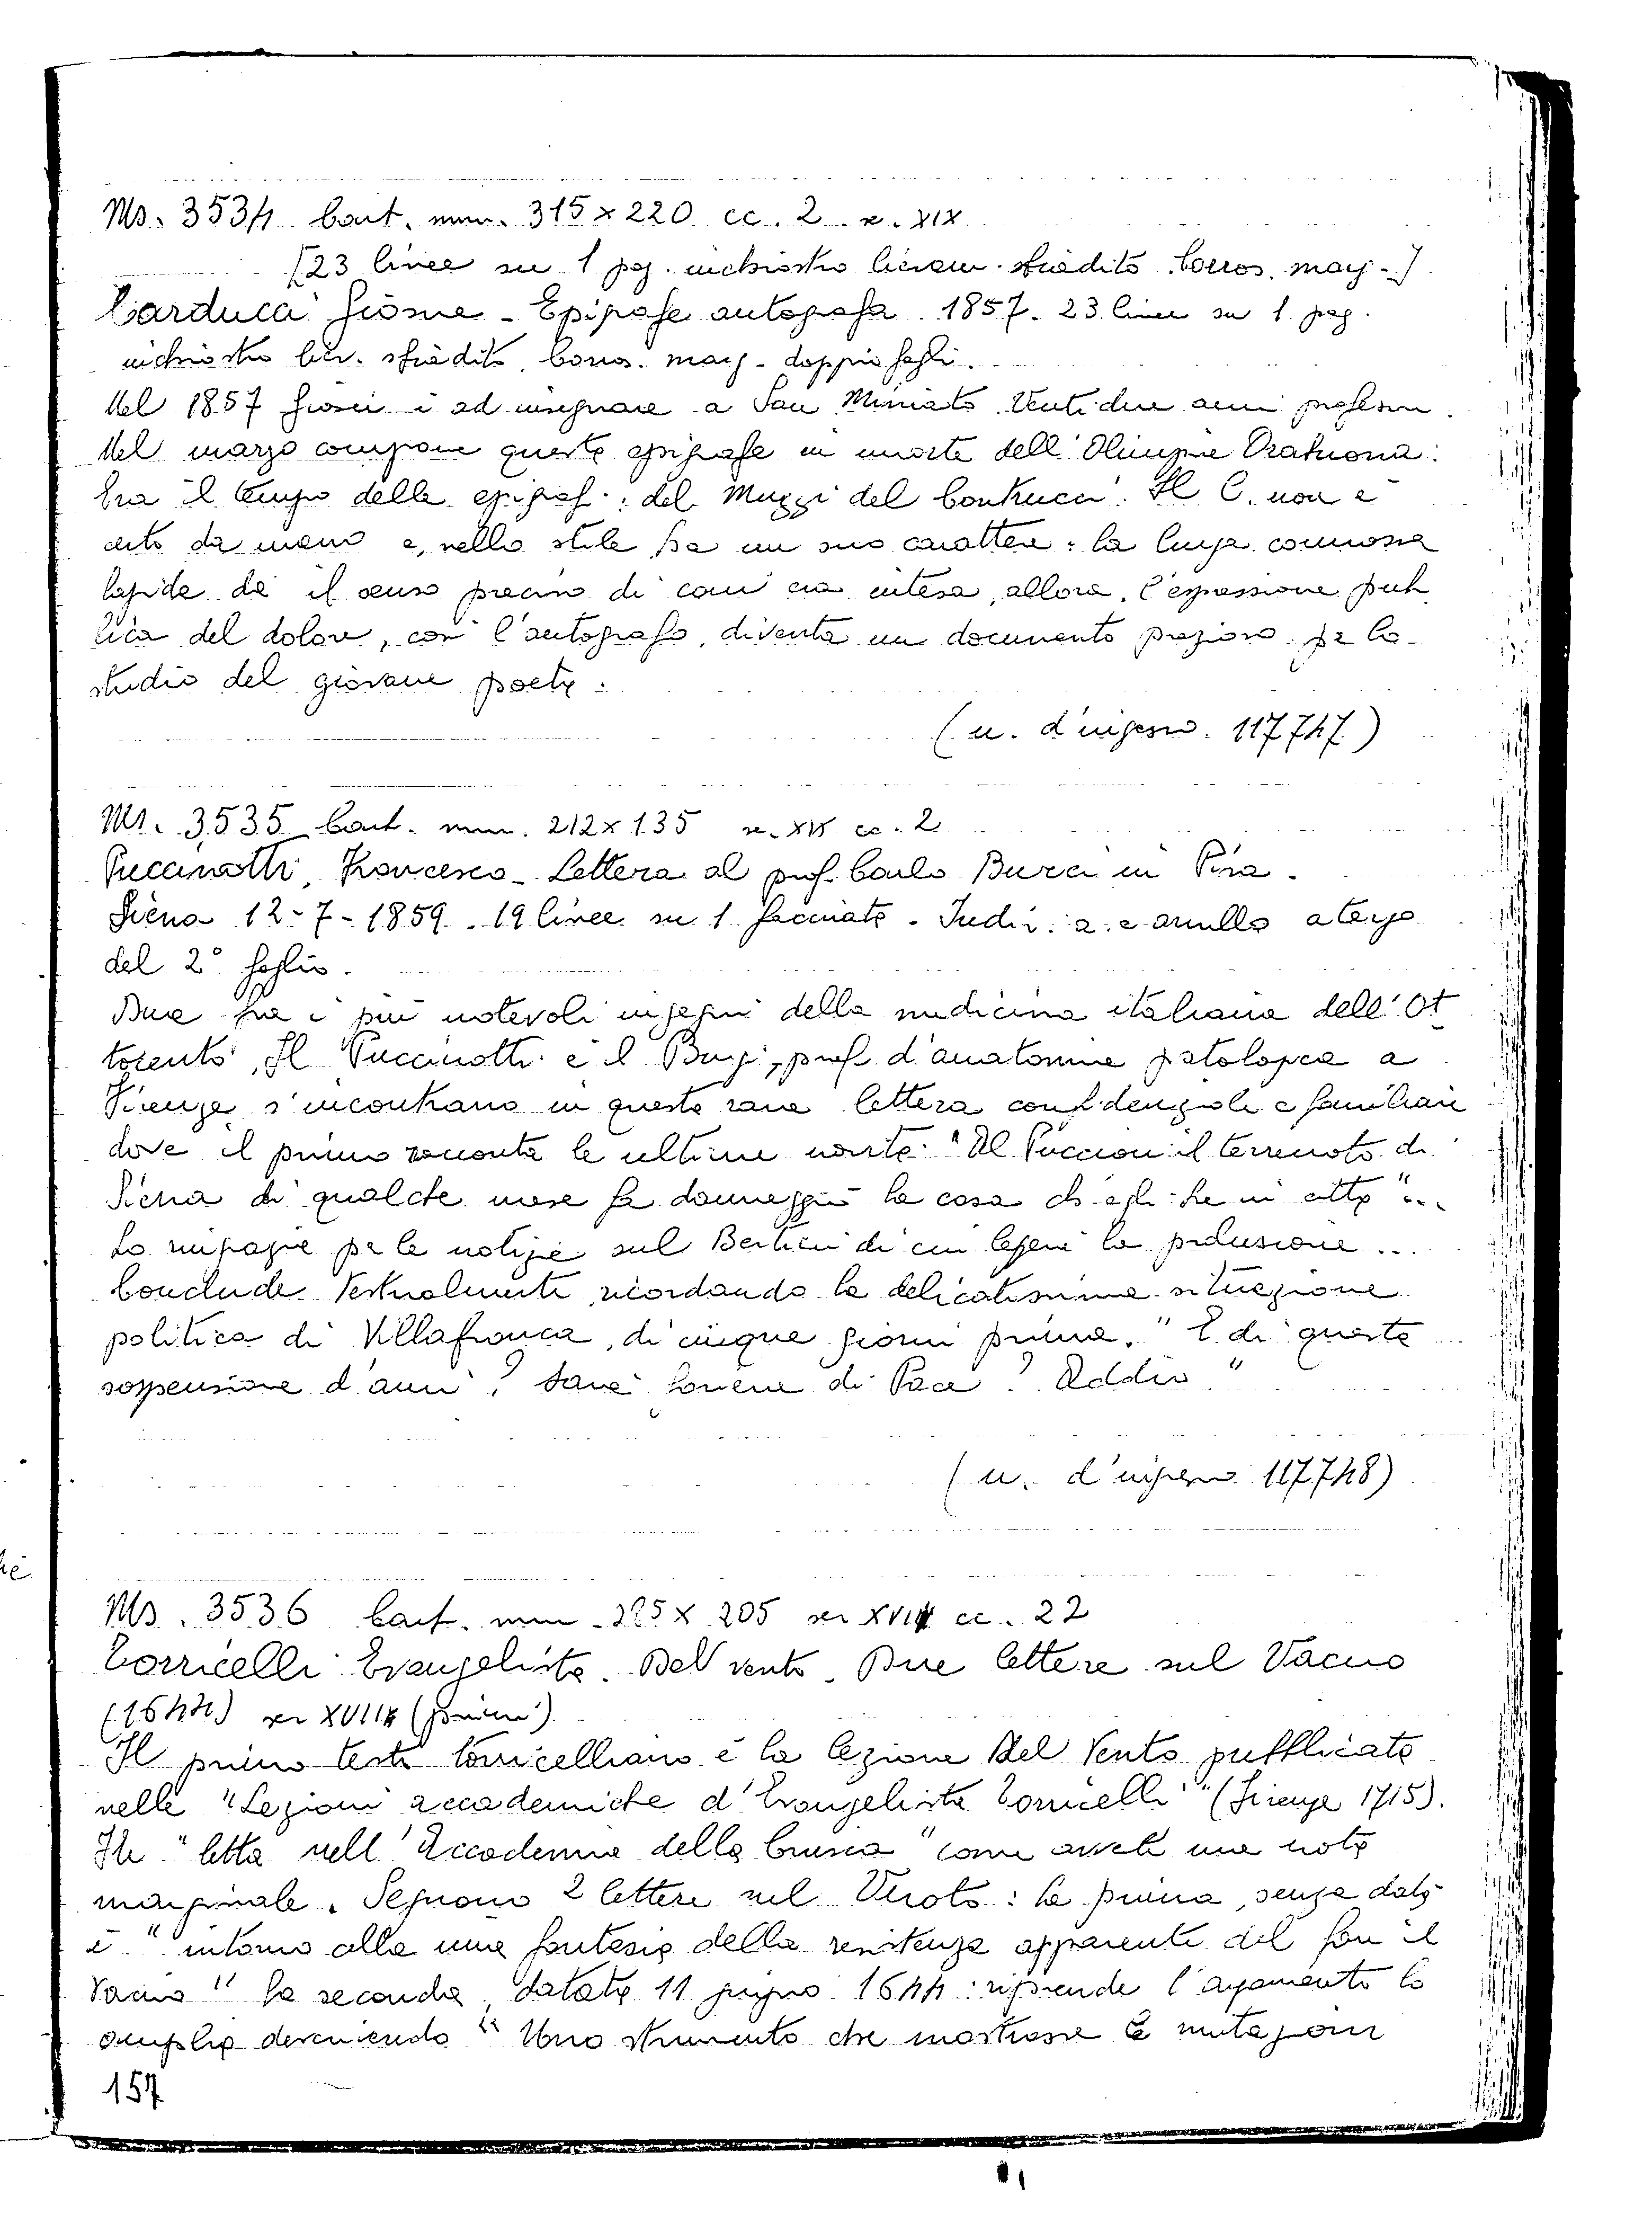 Ms. 3534 Cart. mm. 315 x 220 cc. 2. s. XIX
[23 linee su 1 pag. inchiostro sbiadito. Corros. marg.]
Carducci Giosue - Epigrafe autografa. 1857. 23 linee su 1 pag.
inchiostro sbiadito. Corros. marg. doppio fogli.
Nel 1857 Giosue è ad insegnare a San Miniato. Ventidue anni professore.
Nel marzo compone queste epigrafe in morte dell'Olimpia
Era il tempo delle epigraf.: del Muzzi del Contrucci. Il C. non è
certo da meno e, nello stile ha un suo carattere: la lunga commossa
lapide dà il senso preciso di com'era intesa, allora, l'espressione pub
lica del dolore, così l'autografo, diventa un documento prezioso per lo
studio del giovane poeta.
(n. d'ingresso. 117747)
Ms. 3535 Cart. mm. 212 x 135 s. XIX cc. 2
Puccinotti, Francesco - Lettera al prof. Carlo Burci in Pisa.
Siena 12-7-1859. 19 linee su 1 facciata. Indir. e annullo a tergo
del 2° foglio.
Due fra i più notevoli ingegni della medicina italiana dell'Ot
tocento, Il Puccinotti e il Burci, prof. d'anatomia patologica a
Firenze s'incontrano in questa rara lettera confidenziale e familiare
dove il primo racconta le ultime novità: "Al Puccioni il terremoto di
Siena di qualche mese fa danneggiò la casa ch'egli ha in città"...
Lo ringrazia per le notizie sul Bertini di cui leggerà la prolusione...
Conclude testualmente ricordando la delicatissima situazione
politica di Villafranca, di cinque giorni prima. "E di questa
sospensione d'armi? Sarà foriera di Pace? Addio"
(n. d'ingresso 117748)
Ms. 3536 Cart. mm. 295 x 205 sec XVII cc. 22
Torricelli Evangelista. Del vento. Due lettere sul Vacuo
(1644) sec XVIII (primi)
Il primo testo torricelliano è la lezione Del Vento pubblicata
nelle "Lezioni accademiche d'Evangelista Torricelli" (Firenze 1715).
Fu "letta nell'Accademia della Crusca" come avverte una nota
marginale. Seguono 2 lettere sul Vuoto: la prima, senza data
è "intorno alla mia fantesia della resistenza apparente del far il
Vacuo" la seconda, datata 11 giugno 1644: riprende l'argomento lo
amplia descrivendo "Uno strumento che mostrasse le mutazioni
157